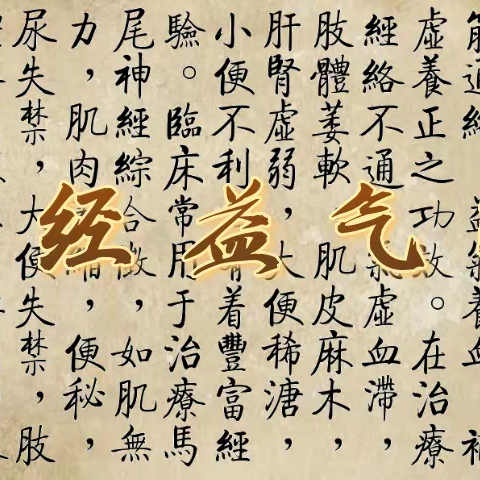 经益气
筋通經益氣養血補
虛養正之功效。在治療
經絡不通氣虛血滯，
肢體萎軟肌皮麻木，
肝腎虛弱，大便稀溏，
小便不利有着豐富經
驗。臨床常用于治療馬
尾神經綜合徵，如肌無
力，肌肉縮，便秘，
尿失禁，大便失禁，肢